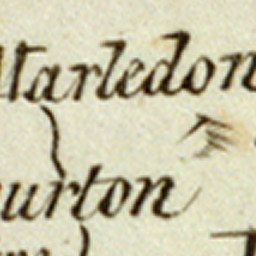 Marledon
urton